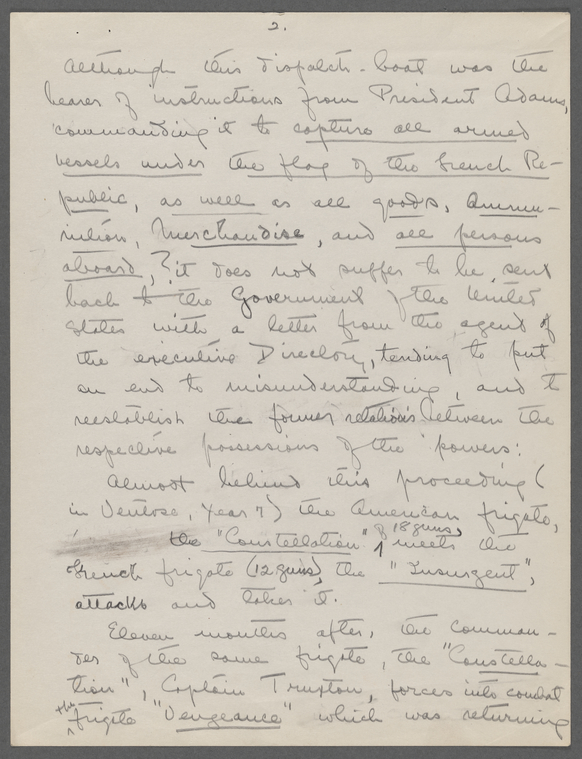 2.
Although this dispatch-boat was the
bearer of instructions from President Adams,
commanding it to capture all armed
vessels under the flag of the French Re-
public, as well as all goods, Ammu-
nition, Merchandise, and all persons
aboard, ? it does not suffer to be sent
back to the Government of the United
States with a letter from the agent of
the executive Directory, tending to put
an end to misunderstanding, and to
reestablish the former relations between the
respective possessions of the powers:
Almost behind this proceeding (
in Ventose, Year 7) the American frigate,
the "Constellation" of 18 guns, meets the
French frigate (12 guns), the "Insurgent",
attacks and takes it.
Eleven months after, the comman-
der of the same frigate, the "Constella-
tion", Captain Truxton, forces into combat
the frigate "Vengeance" which was returning